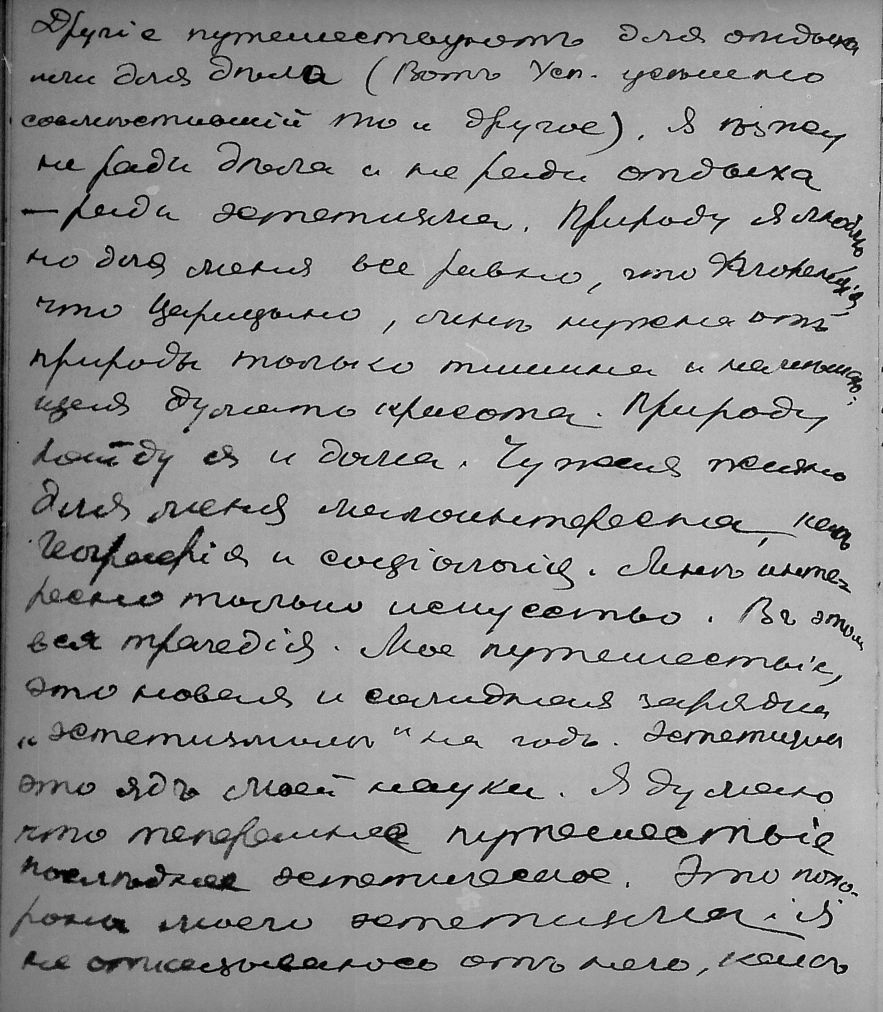 Другіе путешествуютъ для отдыха
или для дѣла (Вотъ Усп. успешно
совмѣстившій то и другое). Я ѣзжу
не ради дѣла и не ради отдыха
— ради эстетизма. Природу я люблю
но для меня все равно, что Флоренція,
что Царицыно, мнѣ нужна отъ
природы только тишина и
думать красота. Природу
найду я и дома. Чужая жизнь
для меня малоинтересна, какъ
географія и соціологія. Мнѣ инте-
ресно только искусство. Въ этом
вся трагедія. Мое путешествіе,
это новая и солидная зарядка
„эстетизмомъ“ на годъ. Эстетизм
это ядъ моей науки. Я думаю
что теперешнее путешествіе
последнее эстетическое. Это похо-
роны моего эстетизма; я
не отказываюсь отъ него, какъ